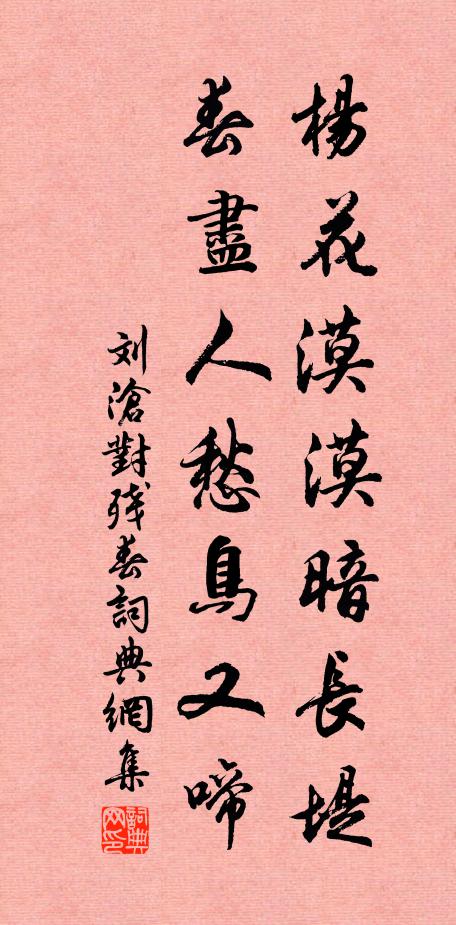 楊花漠漠暗長堤
春盡人愁鳥又啼
刘滄對残春詞典網集
詞典网印